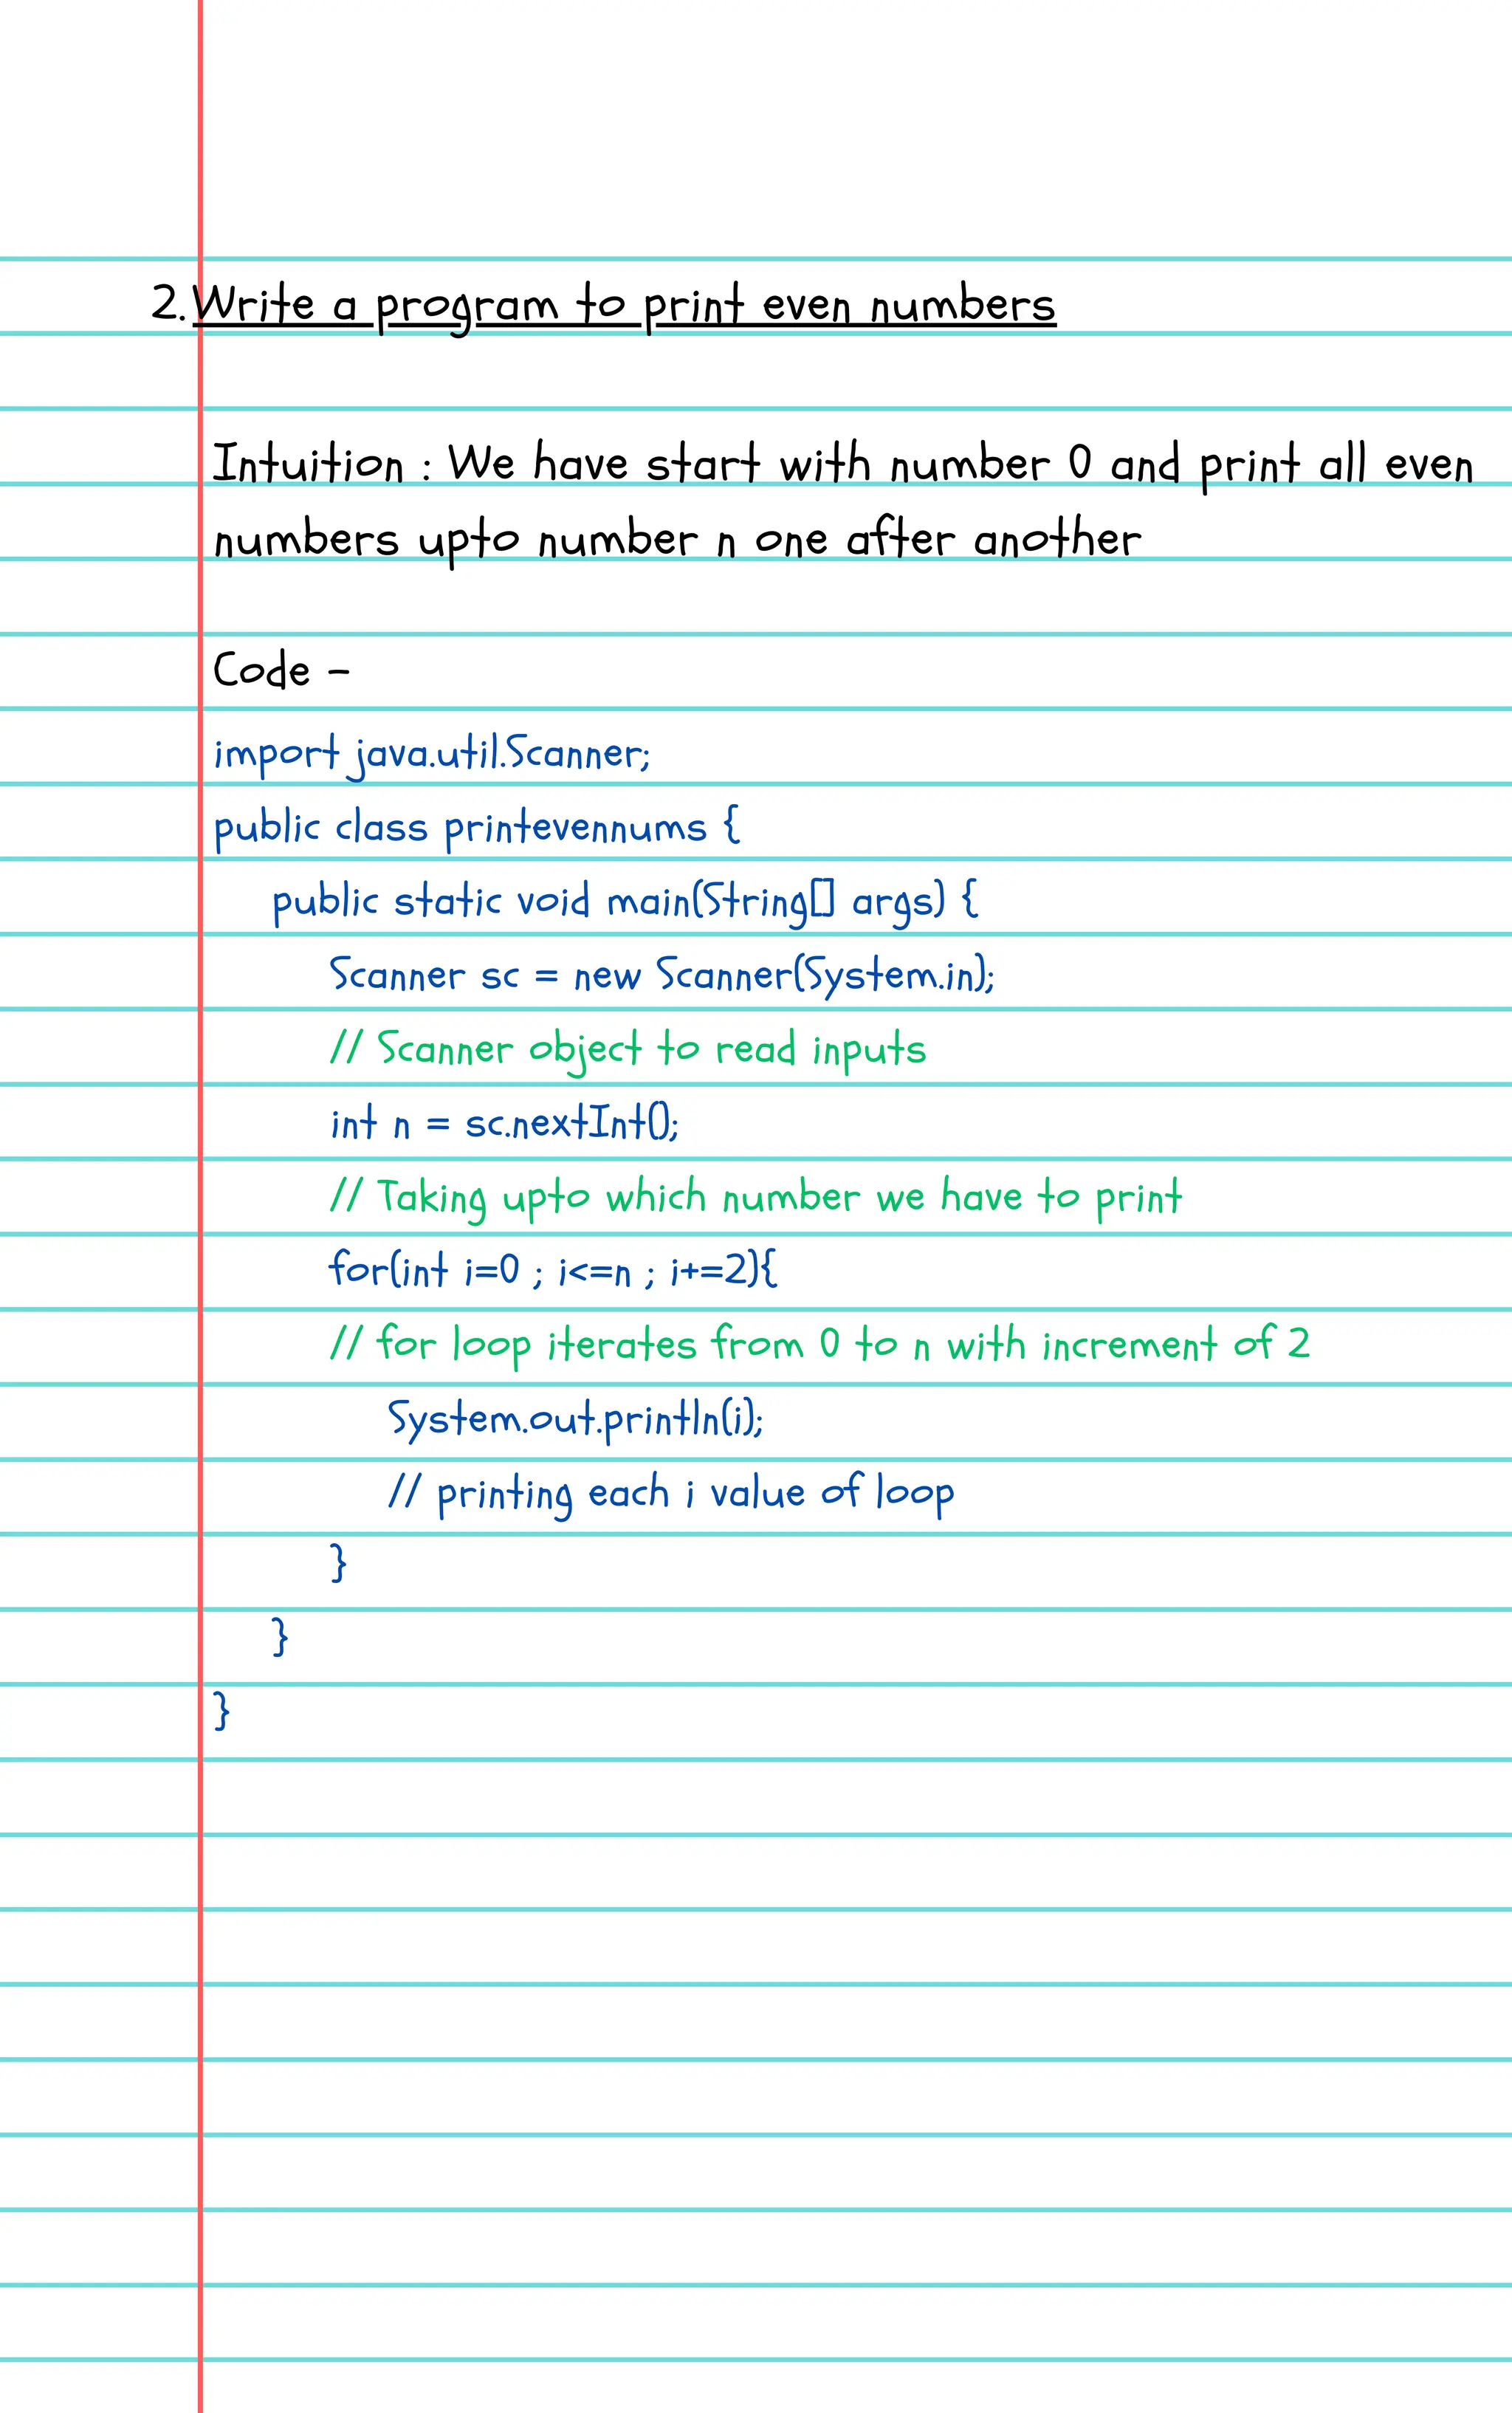 2. Write a program to print even numbers
Intuition : We have start with number 0 and print all even
numbers upto number n one after another
Code -
import java.util.Scanner;
public class printevennums {
public static void main(String[] args) {
Scanner sc = new Scanner(System.in);
// Scanner object to read inputs
int n = sc.nextInt();
// Taking upto which number we have to print
for(int i=0 ; i<=n ; i+=2){
// for loop iterates from 0 to n with increment of 2
System.out.println(i);
// printing each i value of loop
}
}
}